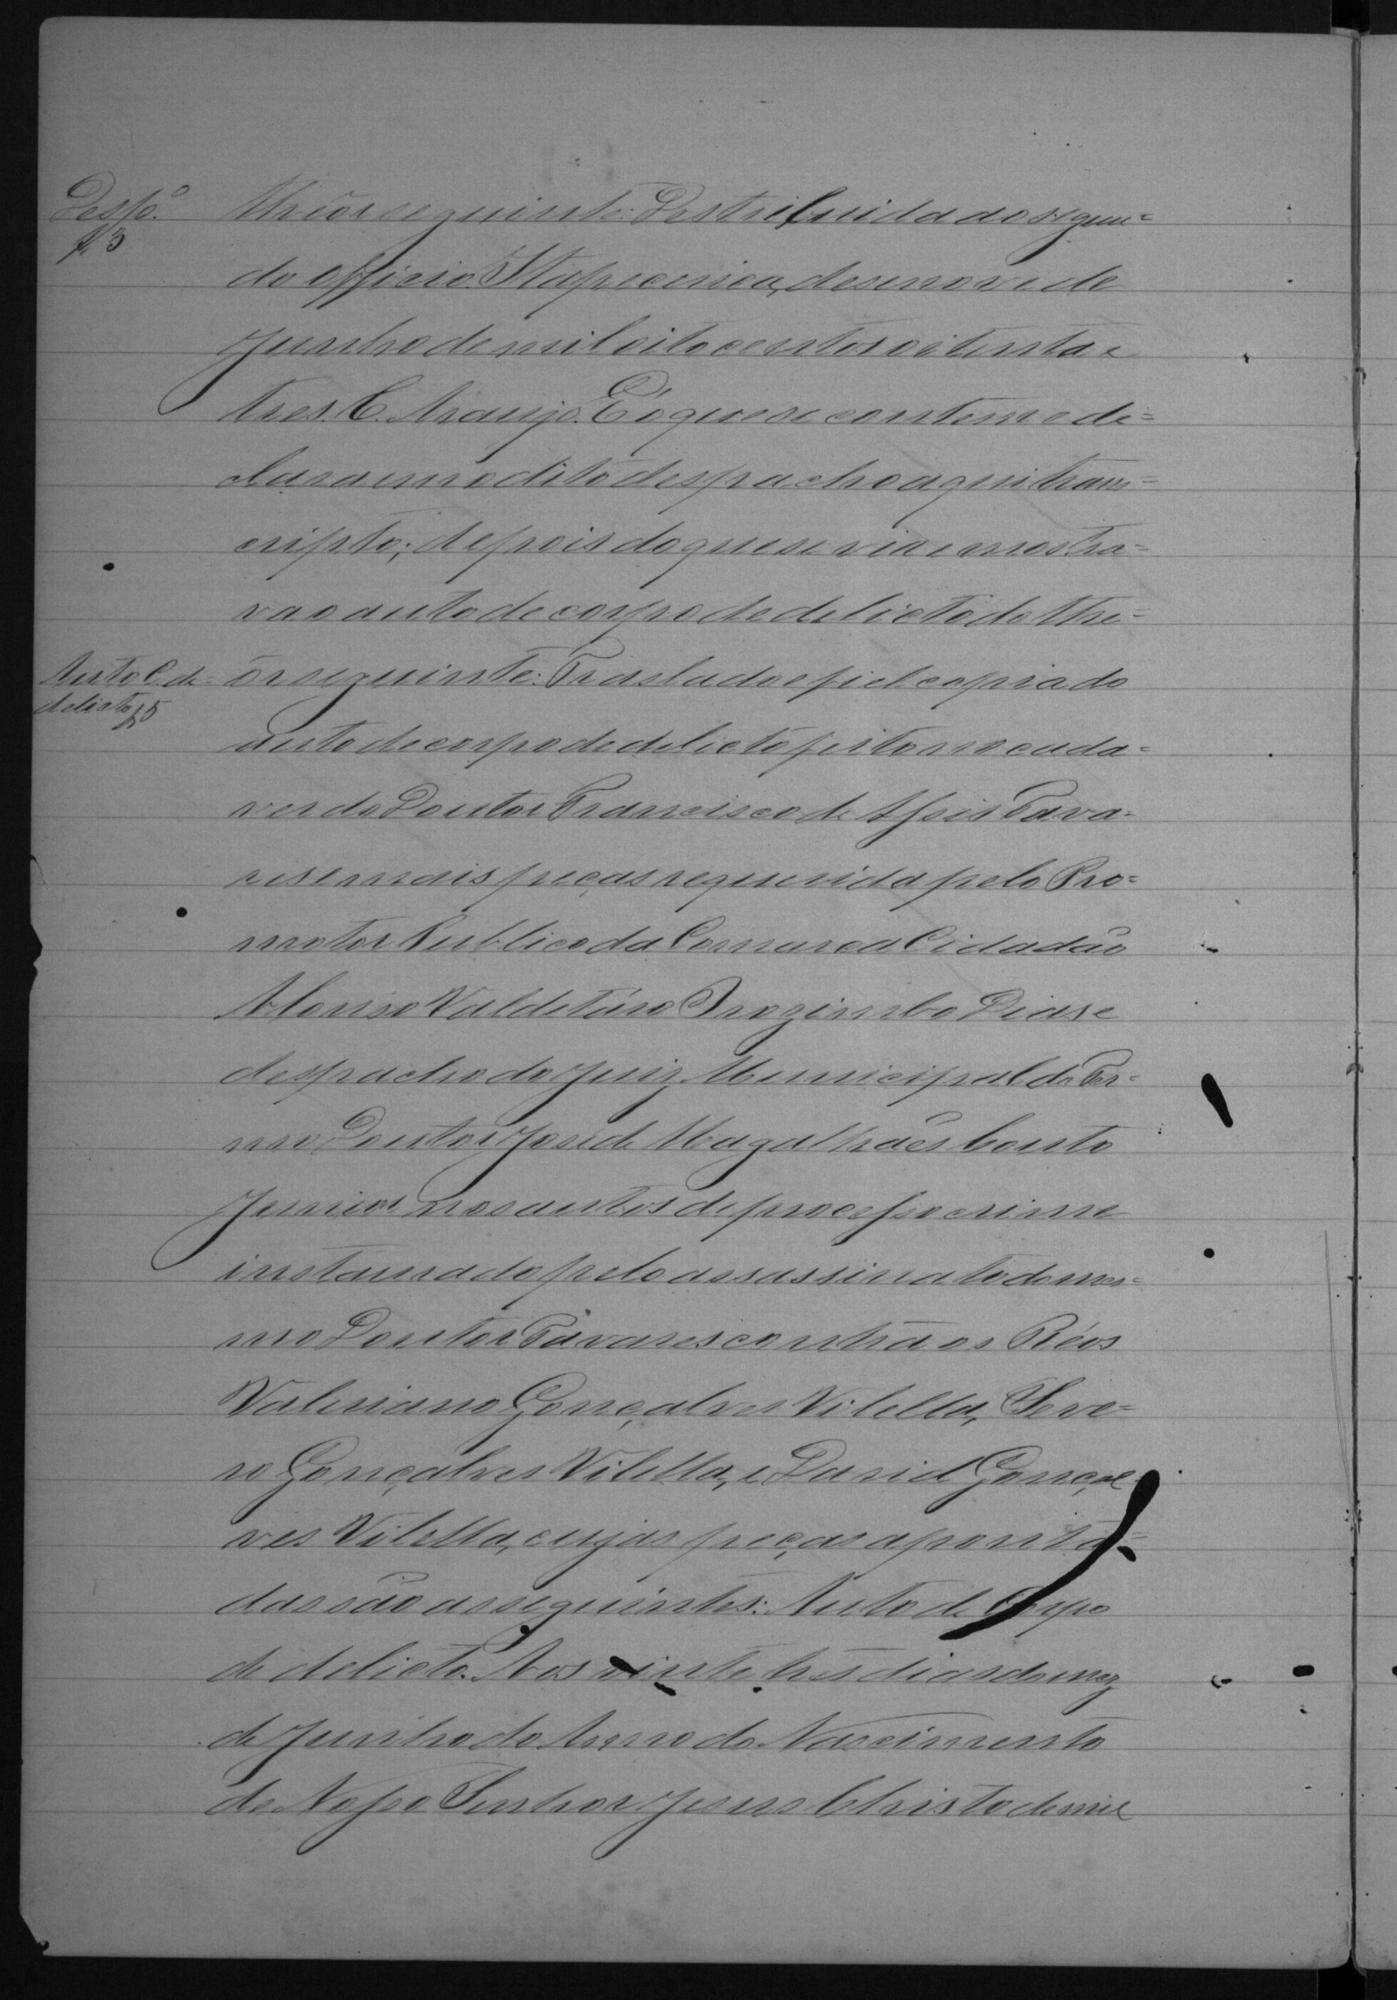 Desp.o
f. 3
Theor seguinte: Destribuida ao segun=
do officio. Itapecerica, desenove de
Junho de mil oito centos oitenta e
tres. C. Araujo. É o que se contem e de=
clara em o dito despacho aqui trans=
cripto; depois do que se via e mostra=
va o auto de corpo de delicto do the=
Auto C. de
delicto f 5
ôr seguinte: Traslado e fiel copia do
auto de corpo de delicto feito no cada=
ver do Doutor Francisco de Assis Tava=
res e mais peças requerida pelo Pro=
motor Publico da Comarca Cidadão
Alonso Valdetaro Trogimbo Dias e
despacho do Juiz Municipal do Ter=
mo Doutor José de Magalhães Couto
Junior nos autos de processo crime
instaurado pelo assassinato do mes=
mo Doutor Tavares contra os Réos
Valeriano Gonçalves Vilella, Seve=
ro Gonçalves Vilella, e David Gonçal=
ves Vilella, cujas peças aponta=
das são as seguintes: Auto de Corpo
de delicto. Aos vinte tres dias do mez
de Junho do Anno do Nascimento
de Nosso Senhor Jesus Christo de mil